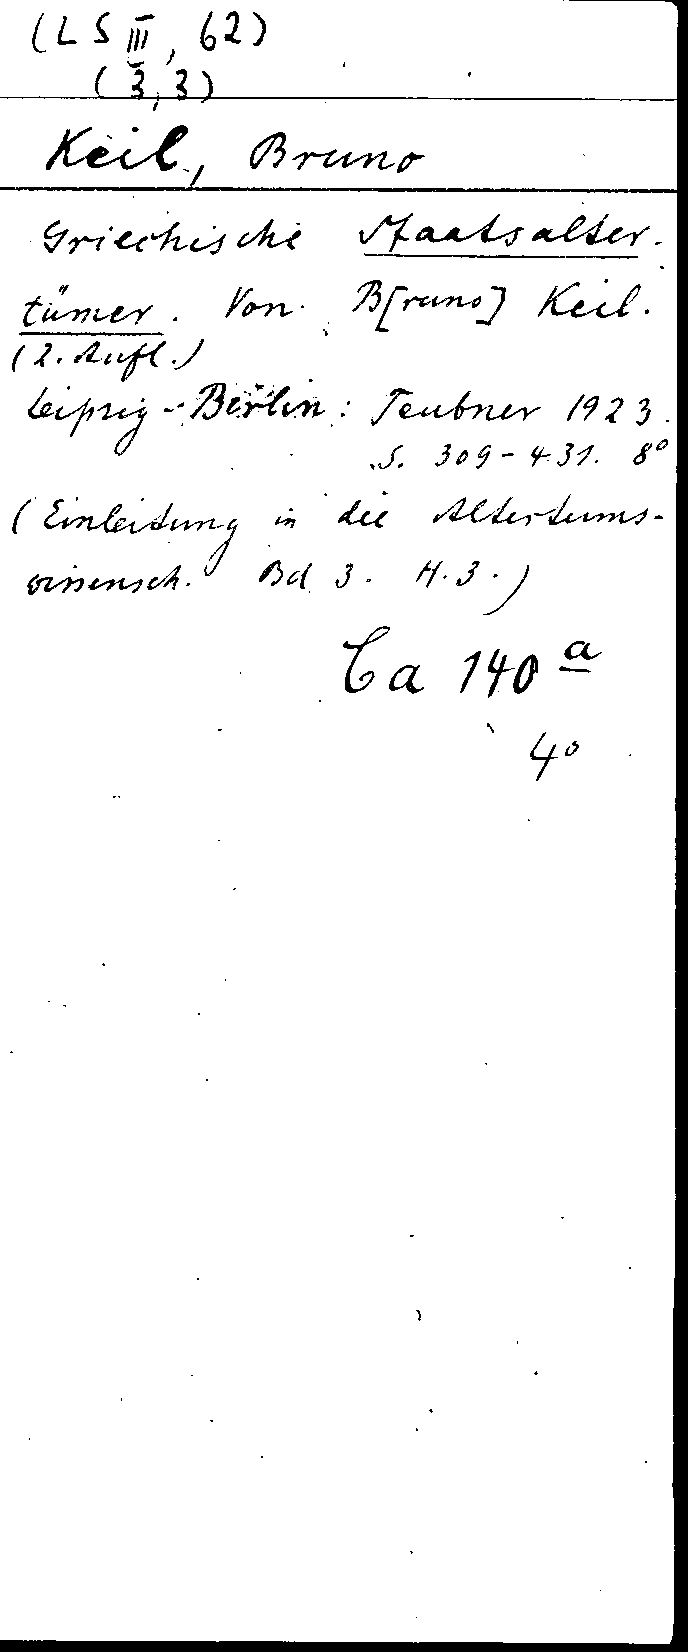 (LS III, 62)
(3,3)
Keil, Bruno
Griechische Staatsalter-
tümer. Von B[runo] Keil.
(2. Aufl.)
Leipzig-Berlin: Teubner 1923.
S. 309-431. 8°
(Einleitung in die Altertums-
wissensch. Bd 3. H. 3.)
Ca 140 a
4°